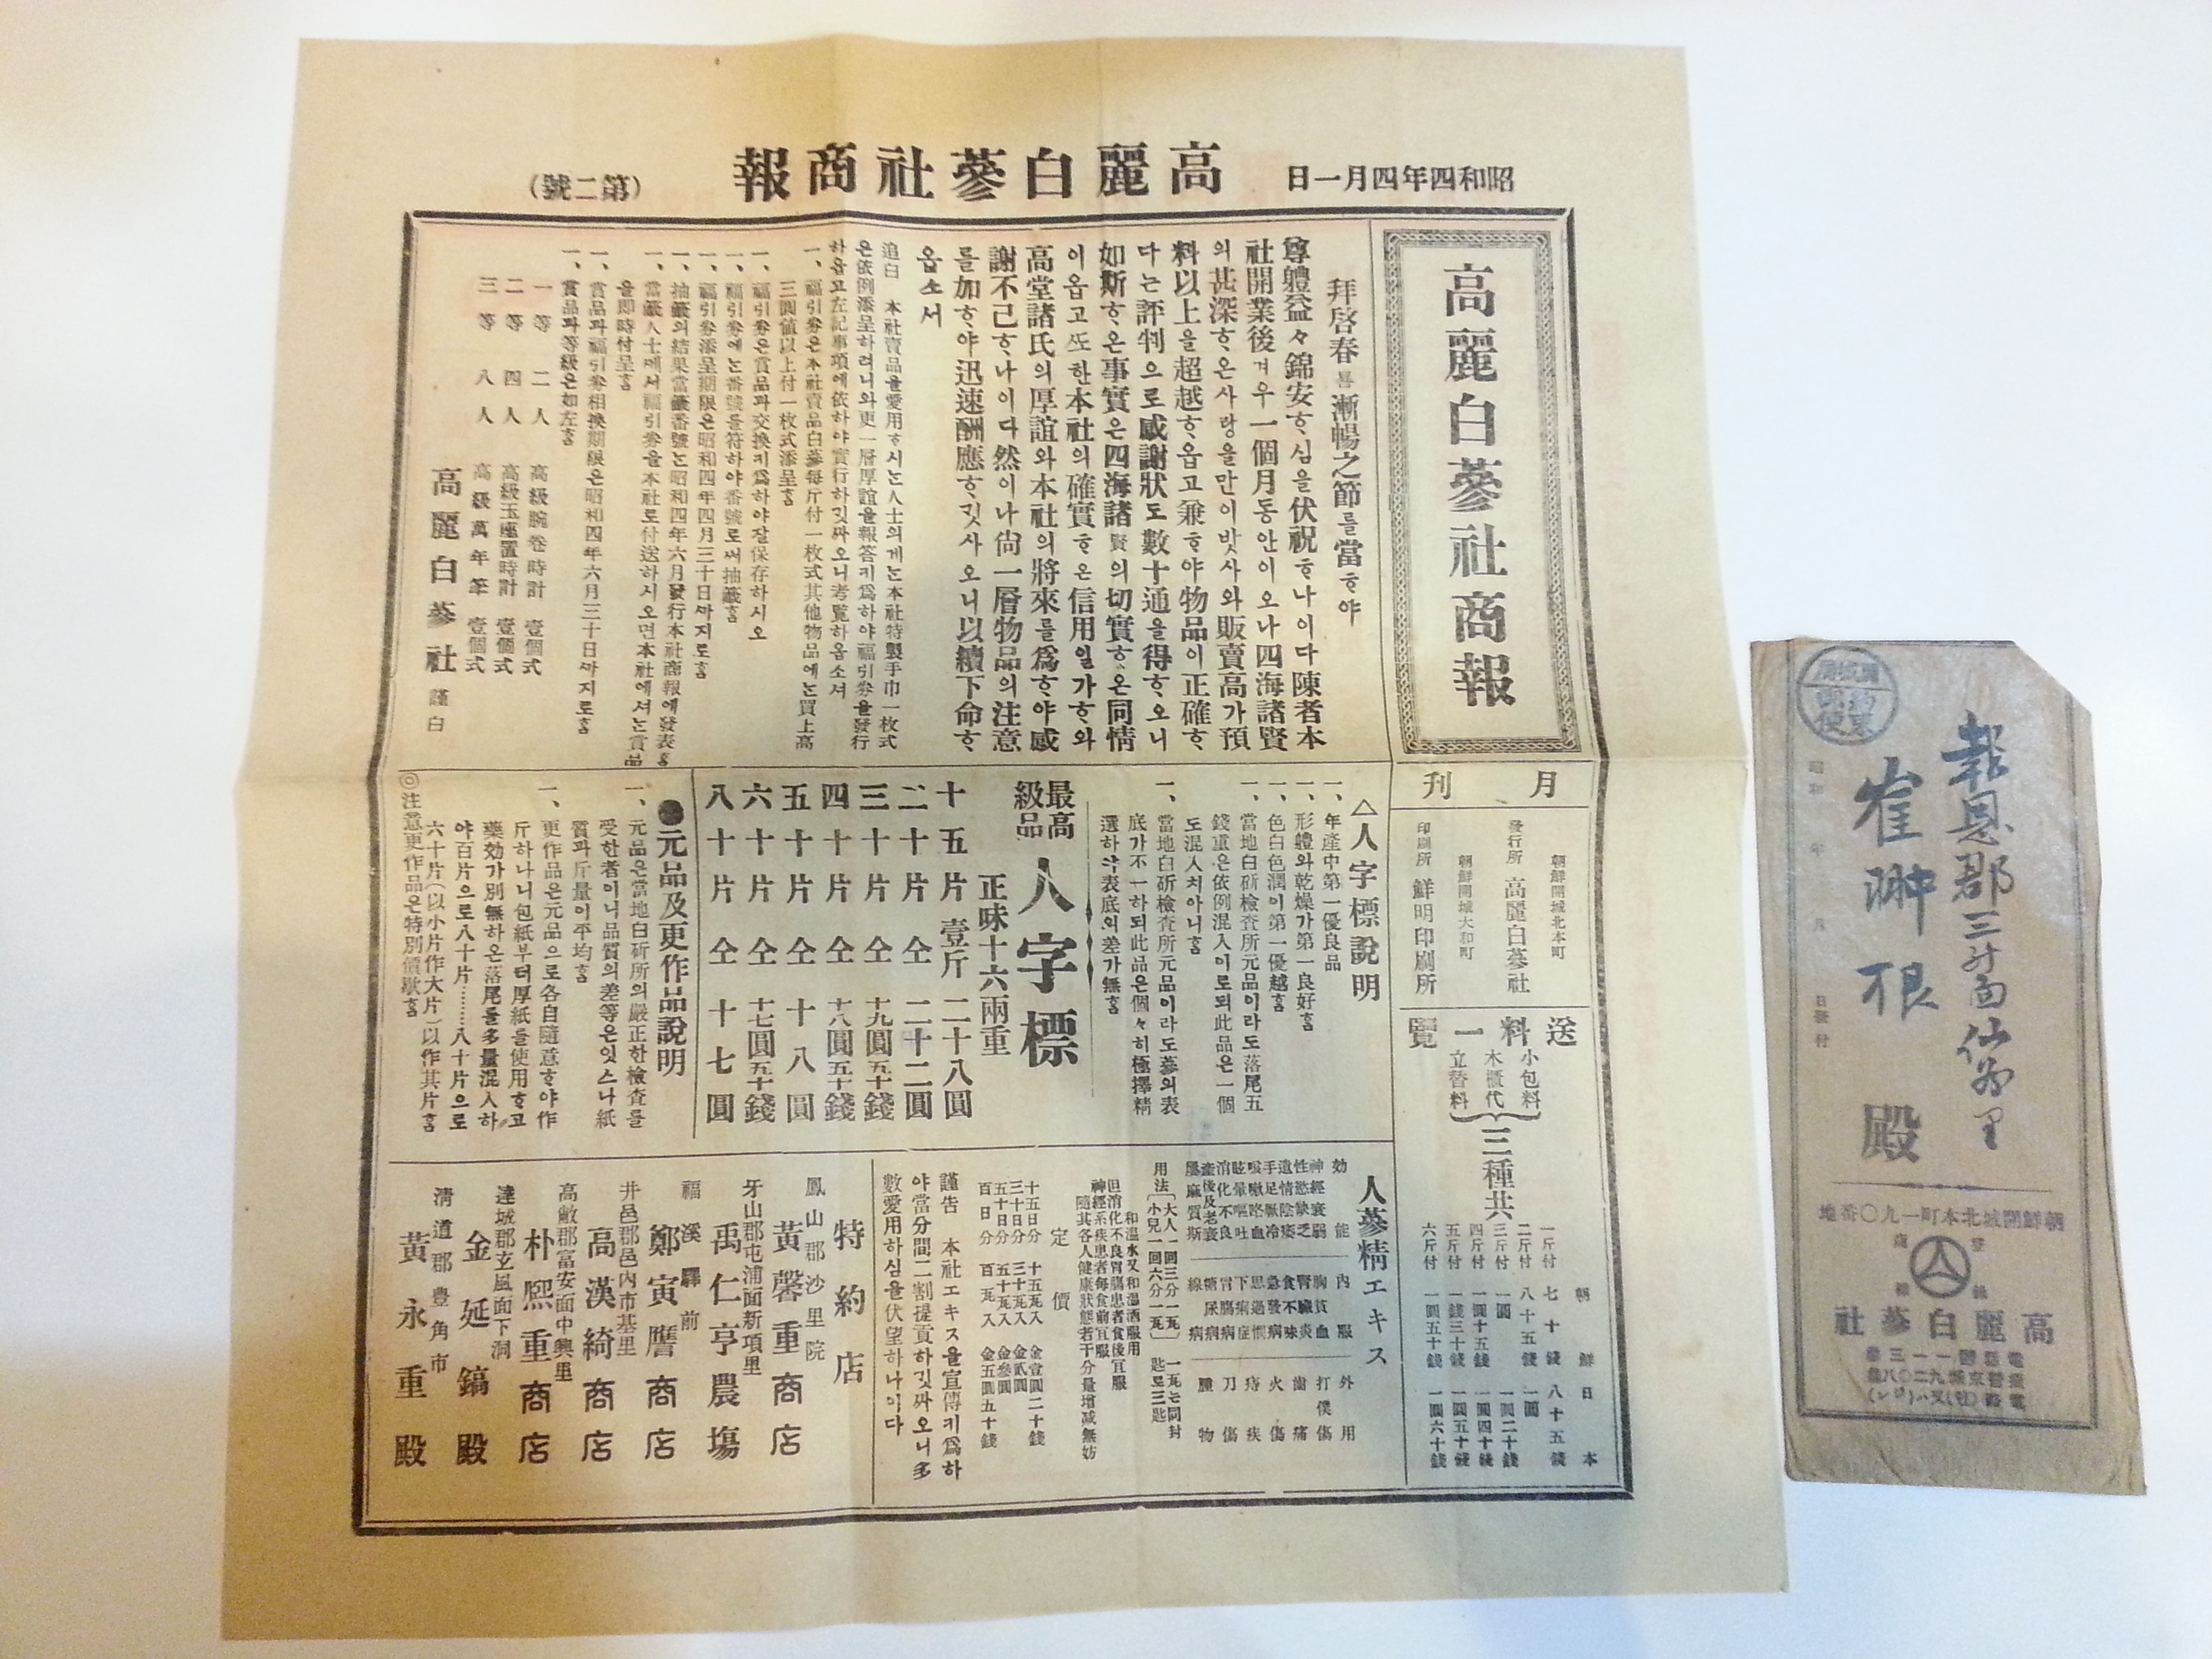 昭和四年四月一日
高麗白蔘社商報
(第二號)
高麗白蔘社商報
拜啓春 漸暢之節를當ᄒᆞ야
尊體益々錦安ᄒᆞ심을伏祝ᄒᆞ나이다陳者本
社開業後겨우一個月동안이오나四海諸賢
의甚深ᄒᆞ온사랑을만이밧사와販賣高가預
料以上을超越ᄒᆞ옵고兼ᄒᆞ야物品이正確ᄒᆞ
다는評判으로感謝狀도數十通을得ᄒᆞ오니
如斯ᄒᆞ온事實은四海諸賢의切實ᄒᆞ온同情
이옵고ᄯᅩ한本社의確實ᄒᆞ온信用일가ᄒᆞ와
高堂諸氏의厚誼와本社의將來를爲ᄒᆞ야感
謝不已ᄒᆞ나이다然이나尙一層物品의注意
를加ᄒᆞ야迅速酬應ᄒᆞ깃사오니以續下命ᄒᆞ
옵소서
追白 本社賣品을愛用ᄒᆞ시는人士의게는本社特製手巾一枚式
은依例添呈하려니와更一層厚誼을報答키爲하야福引券을發行
하옵고左記事項에依하야實行하깃ᄉᆞ오니考覽하옵소셔
一、福引券은本社賣品白蔘每斤付一枚式其他物品에는買上高
三圓値以上付一枚式添呈홈
一、福引券은賞品과交換키爲하야잘保存하시오
一、福引券에는番號를符하야番號로써抽籤홈
一、福引券添呈期限은昭和四年四月三十日ᄭᅡ지로홈
一、抽籤의結果當籤番號는昭和四年六月發行本社商報에發表홈
一、當籤人士ᄭᅦ서福引券을本社로付送하시오면本社에셔는賞品
을即時付呈홈
一、賞品과福引券相換期限은昭和四年六月三十日ᄭᅡ지로홈
一、賞品과等級은如左홈
一等 二人 高級腕卷時計 壹個式
二等 四人 高級玉座置時計 壹個式
三等 八人 高級萬年筆 壹個式
高麗白蔘社 謹白
月刊
朝鮮開城北本町
發行所 高麗白蔘社
朝鮮開城大和町
印刷所 鮮明印刷所
送料一覽
小包料
木櫃代
立替料
三種共
朝鮮 日本
一斤付 七十錢 八十五錢
二斤付 八十五錢 一圓
三斤付 一圓 一圓二十錢
四斤付 一圓十五錢 一圓四十錢
五斤付 一圓三十錢 一圓五十錢
六斤付 一圓五十錢 一圓六十錢
△人字標說明
一、年產中第一優良品
一、形體와乾燥가第一良好홈
一、色白色潤이第一優越홈
一、當地白蔘檢査所元品이라도落尾五
錢重은依例混入이로되此品은一個
도混入치아니홈
一、當地白蔘檢査所元品이라도蔘의表
底가不一하되此品은個々히極擇精
選하야表底의差가無홈
最高級品 人字標
正味十六兩重
十五片 壹斤 二十八圓
二十片 仝 二十二圓
三十片 仝 十九圓五十錢
四十片 仝 十八圓五十錢
五十片 仝 十八圓
六十片 仝 十七圓五十錢
八十片 仝 十七圓
●元品及更作品說明
一、元品은當地白蔘所의嚴正한檢査를
受한者이니品質의差等은잇스나紙
質과斤量이平均홈
一、更作品은元品으로各自隨意ᄒᆞ야作
斤하나니包紙부터厚紙를使用ᄒᆞ고
藥効가別無하온落尾를多量混入하
야百片으로八十片……八十片으로
六十片(以小片作大片)以作其片홈
◎注意更作品은特別價歇홈
人蔘精エキス
効能 內服 外用
神經衰弱 胸貧血 打僕傷
性慾缺乏 腎臟炎 齒痛
遺情陰痿 食不味 火傷
手足厥冷 急發病 痔疾
咳嗽咯血 思過惱 刀傷
眩暈嘔吐 下痢症 腫物
消化不良 胃腸病
產後及老衰 糖尿病
屢麻質斯 線病
用法〔大人一回三分一瓦〕
〔小兒一回六分一瓦〕 一瓦는同封匙로三匙
和溫水又和溫酒服用
但消化不良胃腸患者食後宜服
神經系疾患者每食前宜服
隨其各人健康狀態若干分量增減無妨
定價
十五日分 十五瓦入 金壹圓二十錢
三十日分 三十瓦入 金貳圓
五十日分 五十瓦入 金參圓
百日分 百瓦入 金五圓五十錢
謹告 本社エキス을宣傳키爲하
야當分間二割提貢하깃ᄉᆞ오니多
數愛用하심을伏望하나이다
特約店
鳳山郡沙里院
黃馨重商店
牙山郡屯浦面新項里
禹仁亨農塲
福溪驛前
鄭寅譍商店
井邑郡邑內市基里
高漢綺商店
高敞郡富安面中興里
朴熙重商店
達城郡玄風面下洞
金延鎬殿
淸道郡豊角市
黃永重殿
開城局
約束郵便
報恩郡三升面仙谷里
崔珊根
殿
昭和 年 月 日發付
朝鮮開城北本町一九〇番地
登錄商標
高麗白蔘社
電話番一一三番
振替京城九二〇八番